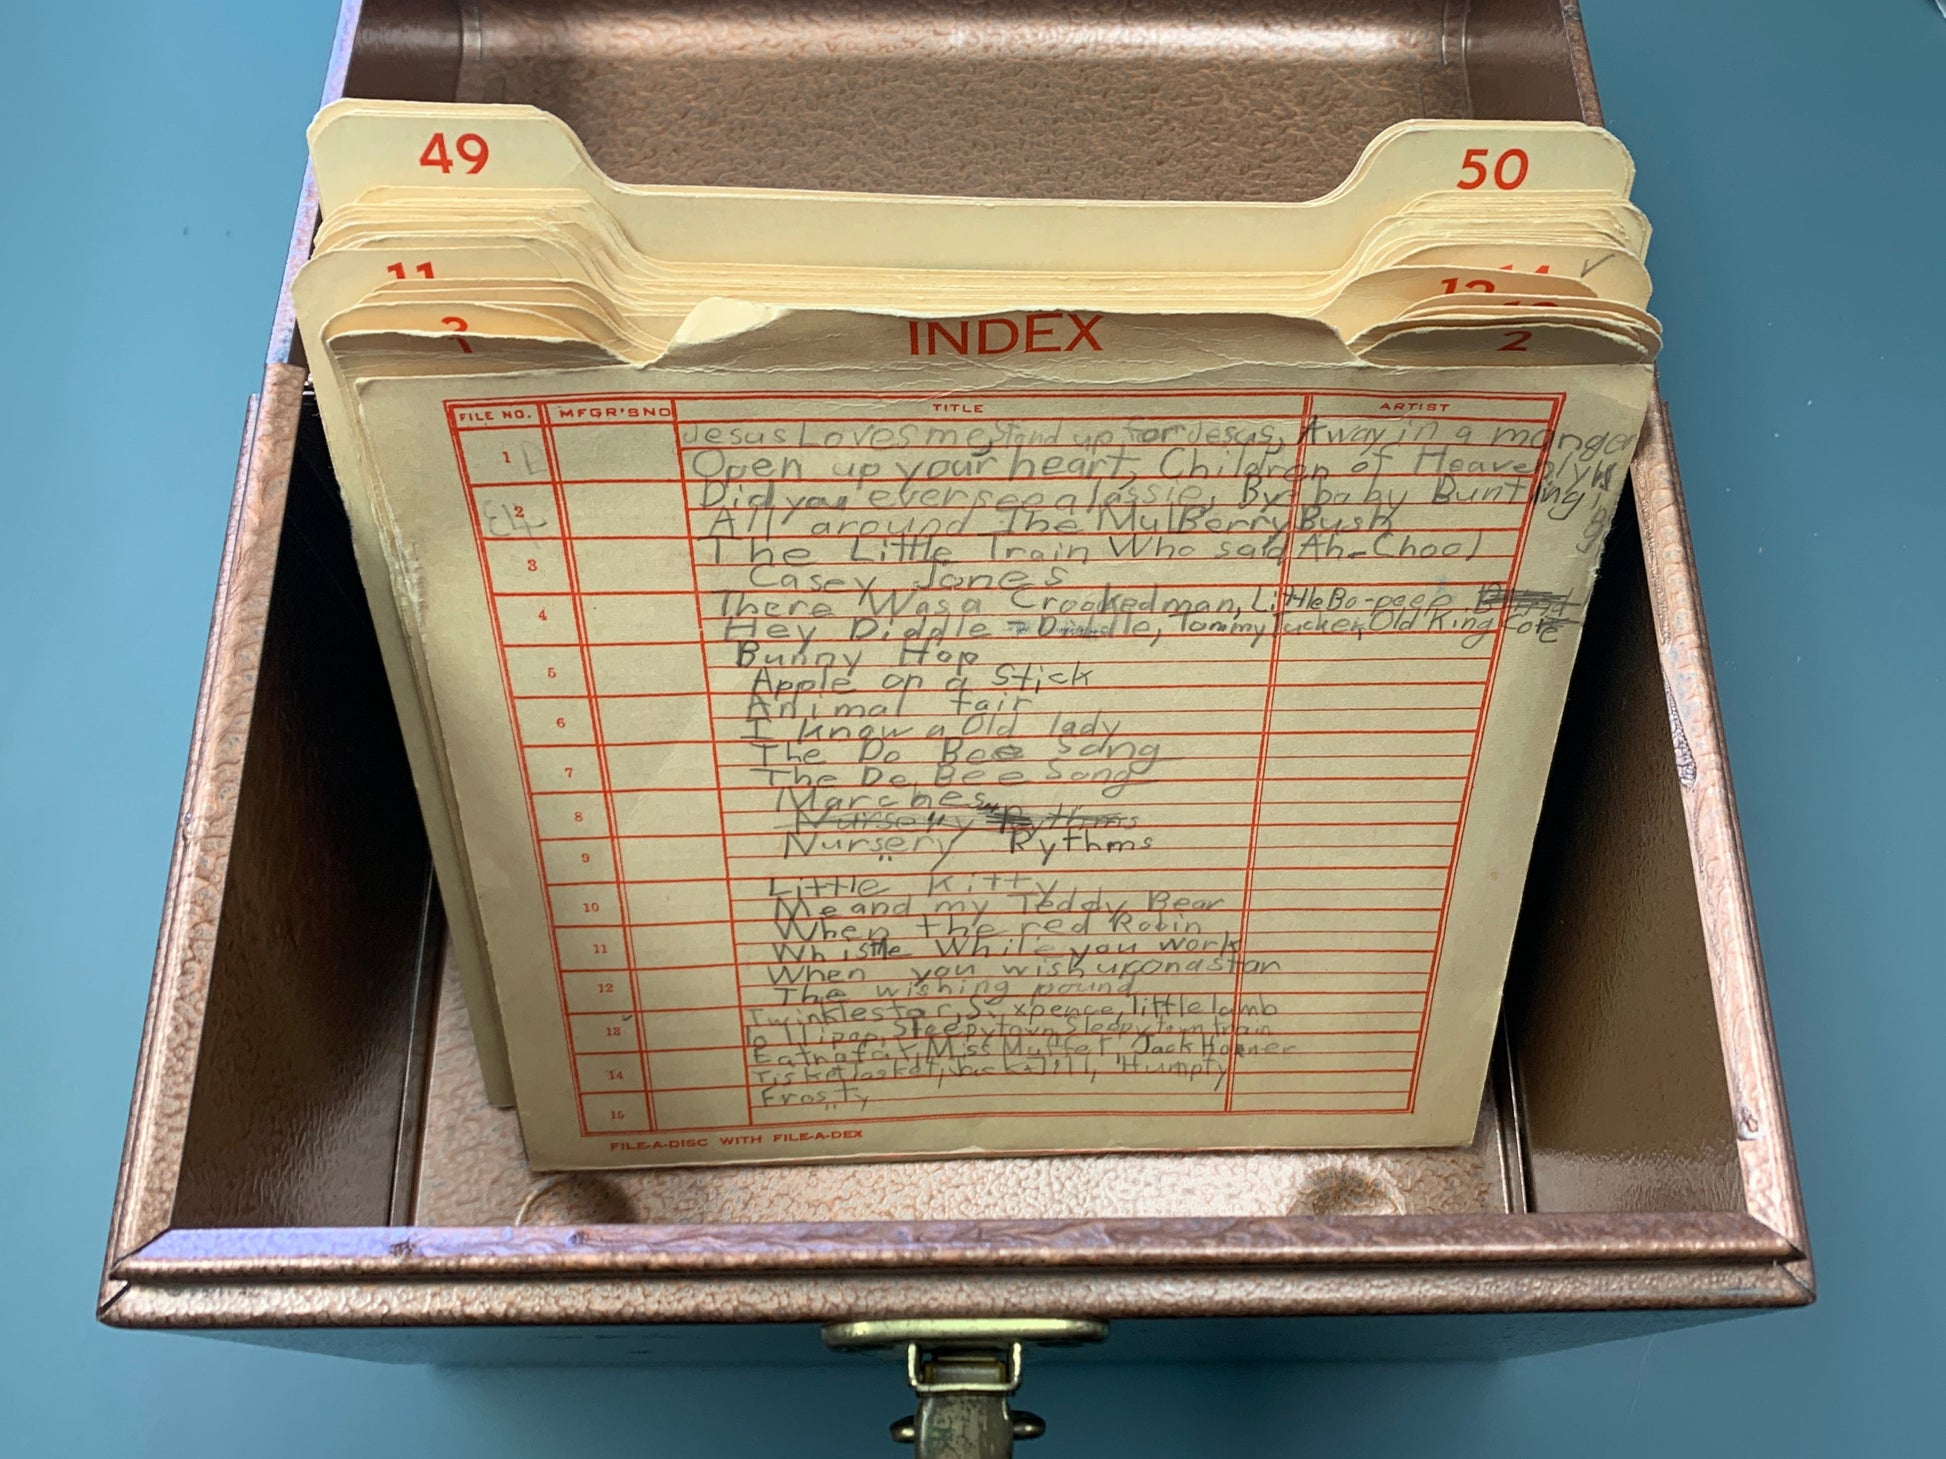 49 50
11 12
1 2
INDEX
FILE NO. MFGR'S NO TITLE ARTIST
1 Jesus Loves me, Stand up for Jesus, Away in a manger
Open up your heart, Children of Heavenly
2 Did you ever see a lassie, Bye baby Bunting
All around The MulBerry Bush
3 The Little Train Who said Ah-Choo!
Casey Jones
4 There Was a Crooked man, Little Bo-peep
Hey Diddle - Diddle, Tommy Tucker, Old King Cole
5 Bunny Hop
Apple on a Stick
6 Animal fair
I know a Old lady
7 The Do Bee Song
The Do Bee Song
8 Marches
Nursery Rythms
9 Nursery Rythms
10 Little Kitty
Me and my Teddy Bear
11 When the red Robin
Whistle While you work
12 When you wish upon a star
The wishing pound
13 Twinkle star, Sixpence, little lamb
Lollipop, Sleepytown Sleepytown train
14 Eatnafat, Miss Muffet Jack Horner
Tisket Tasket, Jack + Jill, Humpty
15 Frosty
FILE-A-DISC WITH FILE-A-DEX